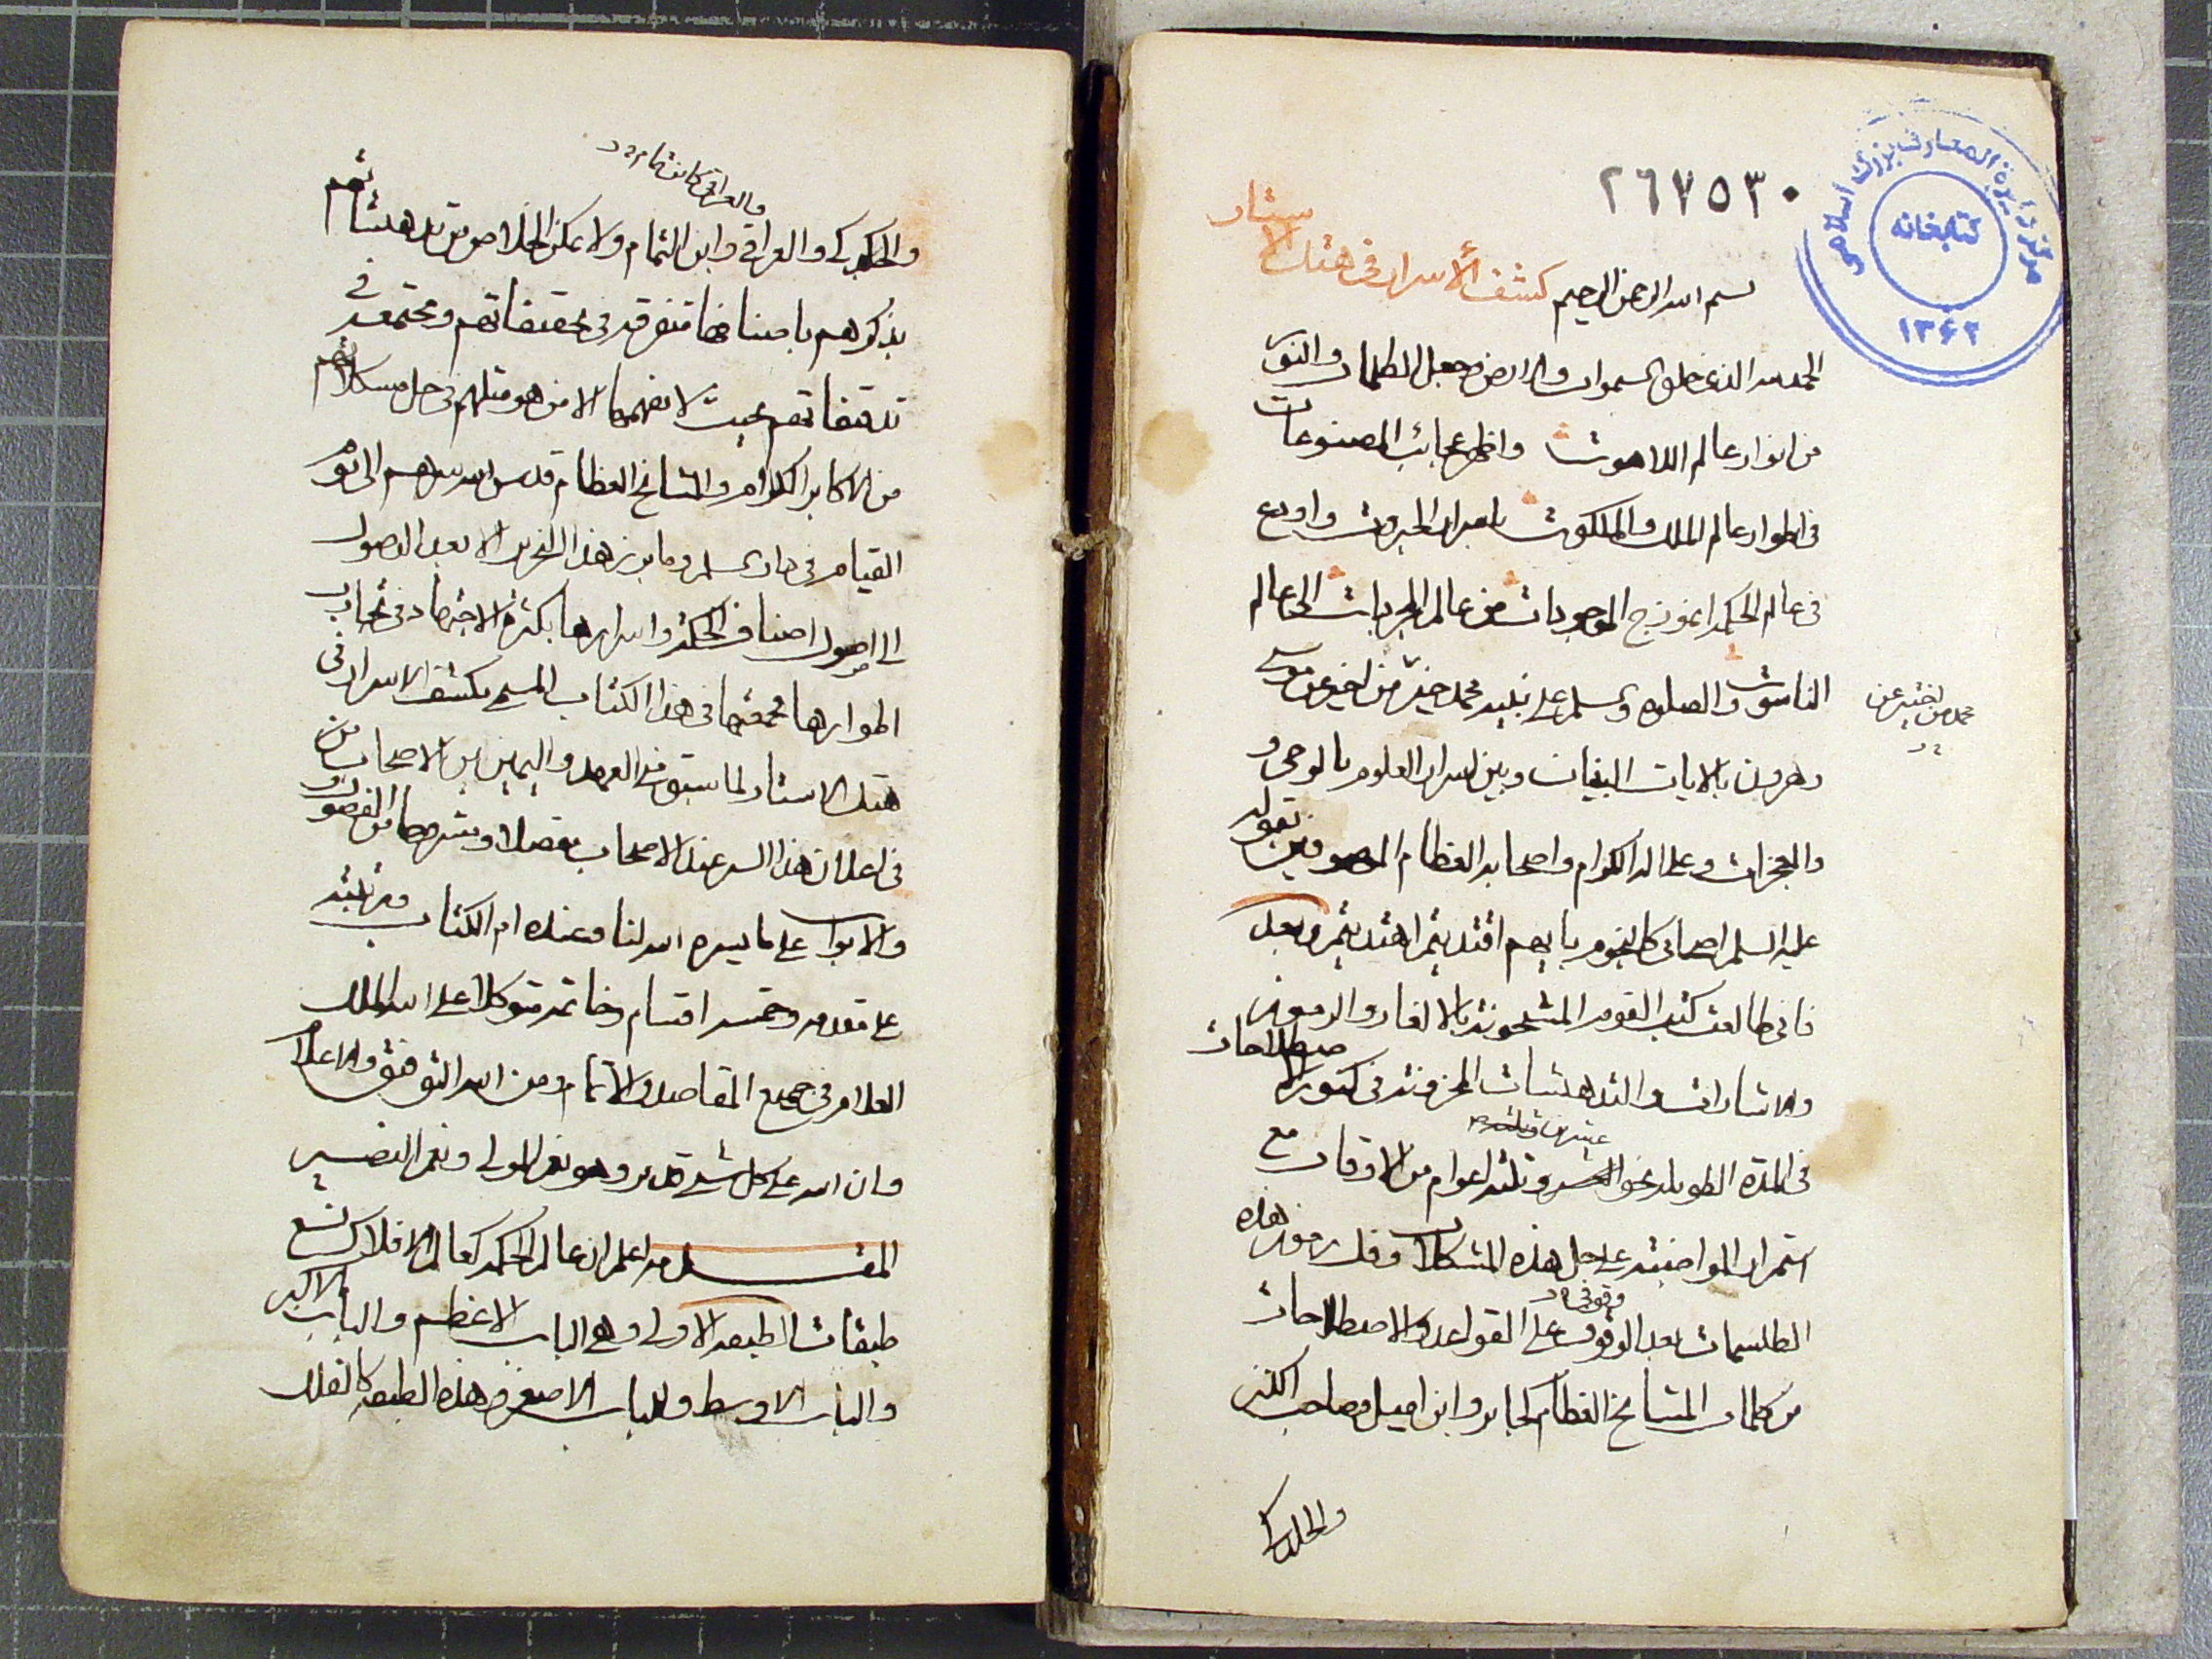 ٢٦٧٥٣٠
مرکز دائرة المعارف بزرگ اسلامی
کتابخانه
١٣٦٢
كشف الأسرار في هتك الاستار
بسم الله الرحمن الرحيم
الحمد لله الذي خلق السموات والارض وجعل الظلمات والنور
من انوار عالم اللاهوت واظهر عجائب المصنوعات
في اطوار عالم الملك والملكوت باسرار الجبروت واودع
في عالم الحكمة انموذج الموجودات من عالم المجردات الى عالم
الناسوت والصلوة والسلم على نبيه محمد خير من اخبر عن موسى
محمد من اخبر عن
وهرون بالايات البينات وبين اسرار العلوم بالوحي و
والمعجزات وعلى اله الكرام واصحابه العظام الموصوفين بقوله
عليه السلم اصحابي كالنجوم بايهم اقتديتم اهتديتم وبعد
فاني طالعت كتب القوم المشحونة بالالغاز والرموز
والاشارات والتدهيشات المخزونة في كنوز الاصطلاحات
عشرين وثلثة
في المدة الطويلة نحو وثلثة اعوام من الاوقات مع
استمرار المواضبة على حل هذه المشكلات وفك رموز هذه
وقوفي
الطلسمات بعد الوقوف على القواعد والاصطلاحات
من كلمات المشايخ العظام كجابر وابن اميل وصاحب المكتسب
والجلدكي
والعراقي كابن تمام
والجلدكي والعراقي وابن التمام ولا يمكن الخلاص من تدهيشاتهم
بذكرهم باصنافها متفرقة في تحقيقاتهم ومجتمعة في
تدقيقاتهم بحيث لا يفهمها الا من هو مثلهم في حل مشكلاتهم
من الاكابر الكرام والمشايخ العظام قدس الله سرهم الى يوم
القيام في دار السلم وما برز هذا التحرير الا بعد الوصول
الى اصول اصناف الحكمة واسرارها بكثرة الاجتهاد في تجارب
اطوارها فجمعتها في هذا الكتاب المسمى بكشف الاسرار في
هتك الاستار لما سبق مني العهد واليمين بين الاصحاب من
في اعلان هذا السر عند الاصحاب مفصلا ومشروحا من الفصول
والابواب على ما يسره الله لنا وعنده ام الكتاب ورتبته
على مقدمة وخمسة اقسام وخاتمة متوكلا على الله الملك
العلام في جميع المقاصد والاتمام ومن الله التوفيق والاعلام
وان الله على كل شئ قدير وهو نعم المولى ونعم النصير
المقدمة اعلم ان عالم الحكمة كعالم الافلاك تسع
طبقات الطبقة الاولى وهي الباب الاعظم والباب الاكبر
والباب الاوسط والباب الاصغر وهذه الطبقة كالفلك